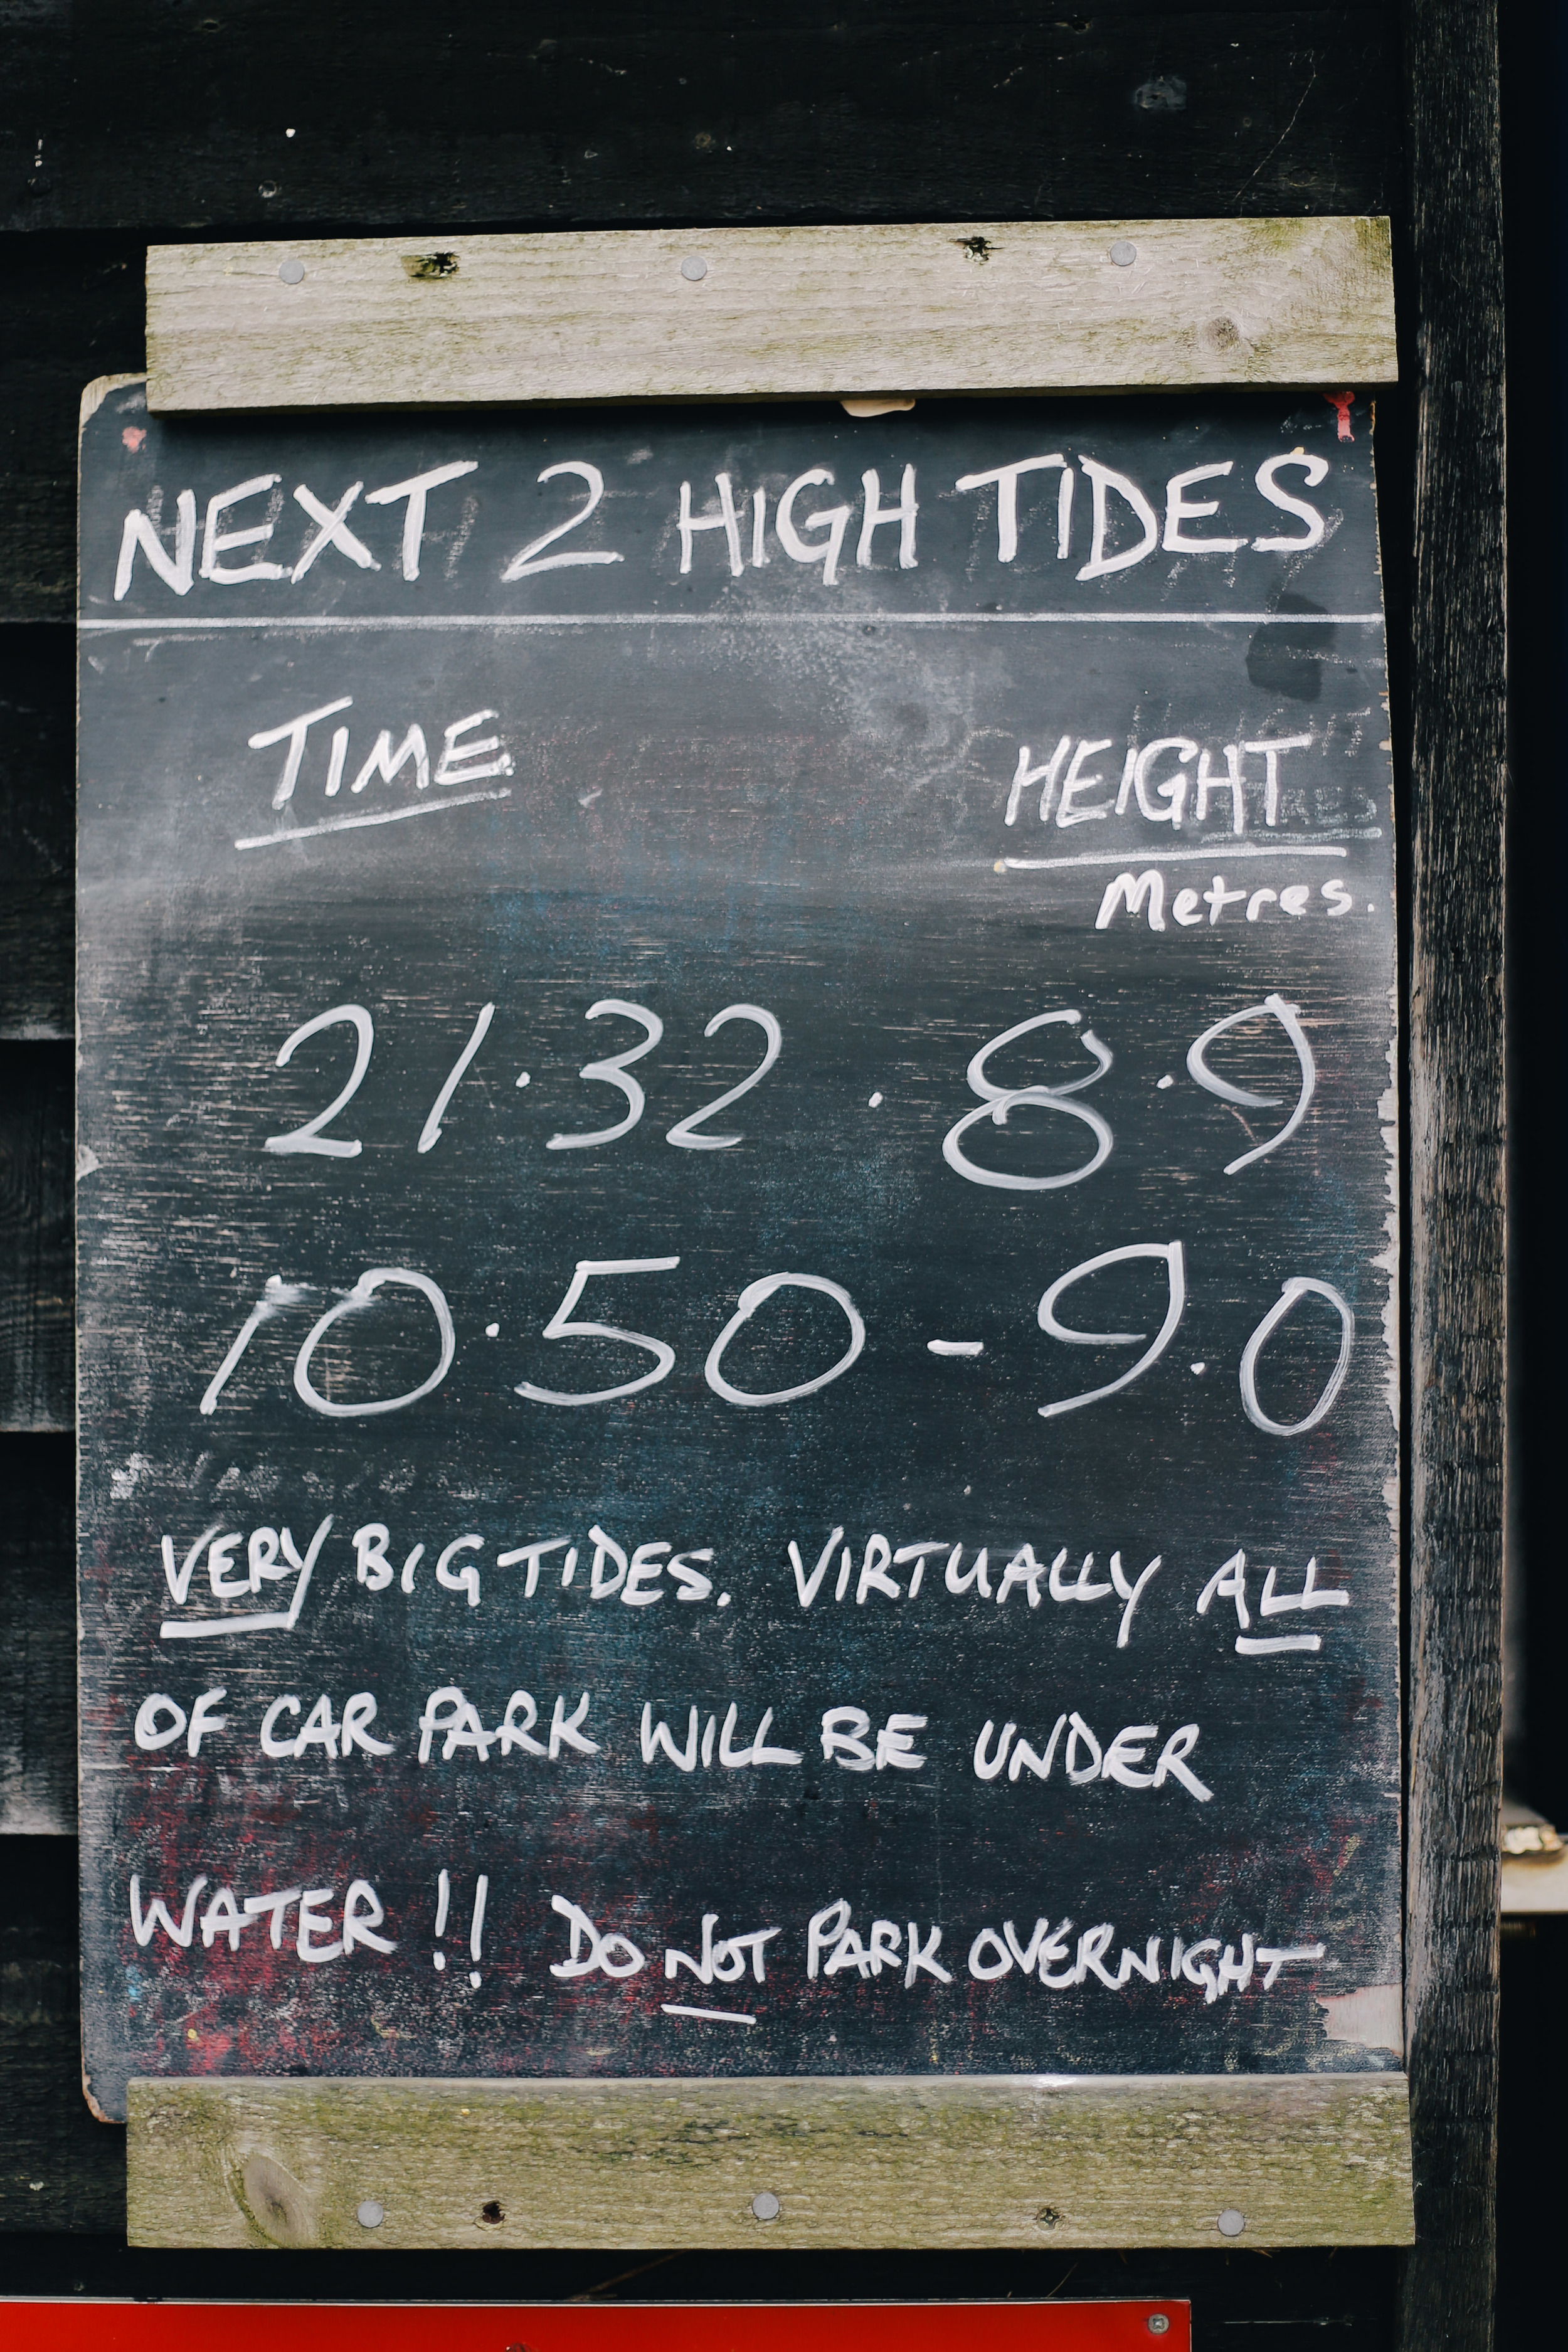 NEXT 2 HIGH TIDES
TIME HEIGHT
Metres.
21.32 . 8.9
10.50 - 9.0
VERY BIG TIDES. VIRTUALLY ALL
OF CAR PARK WILL BE UNDER
WATER !! DO NOT PARK OVERNIGHT